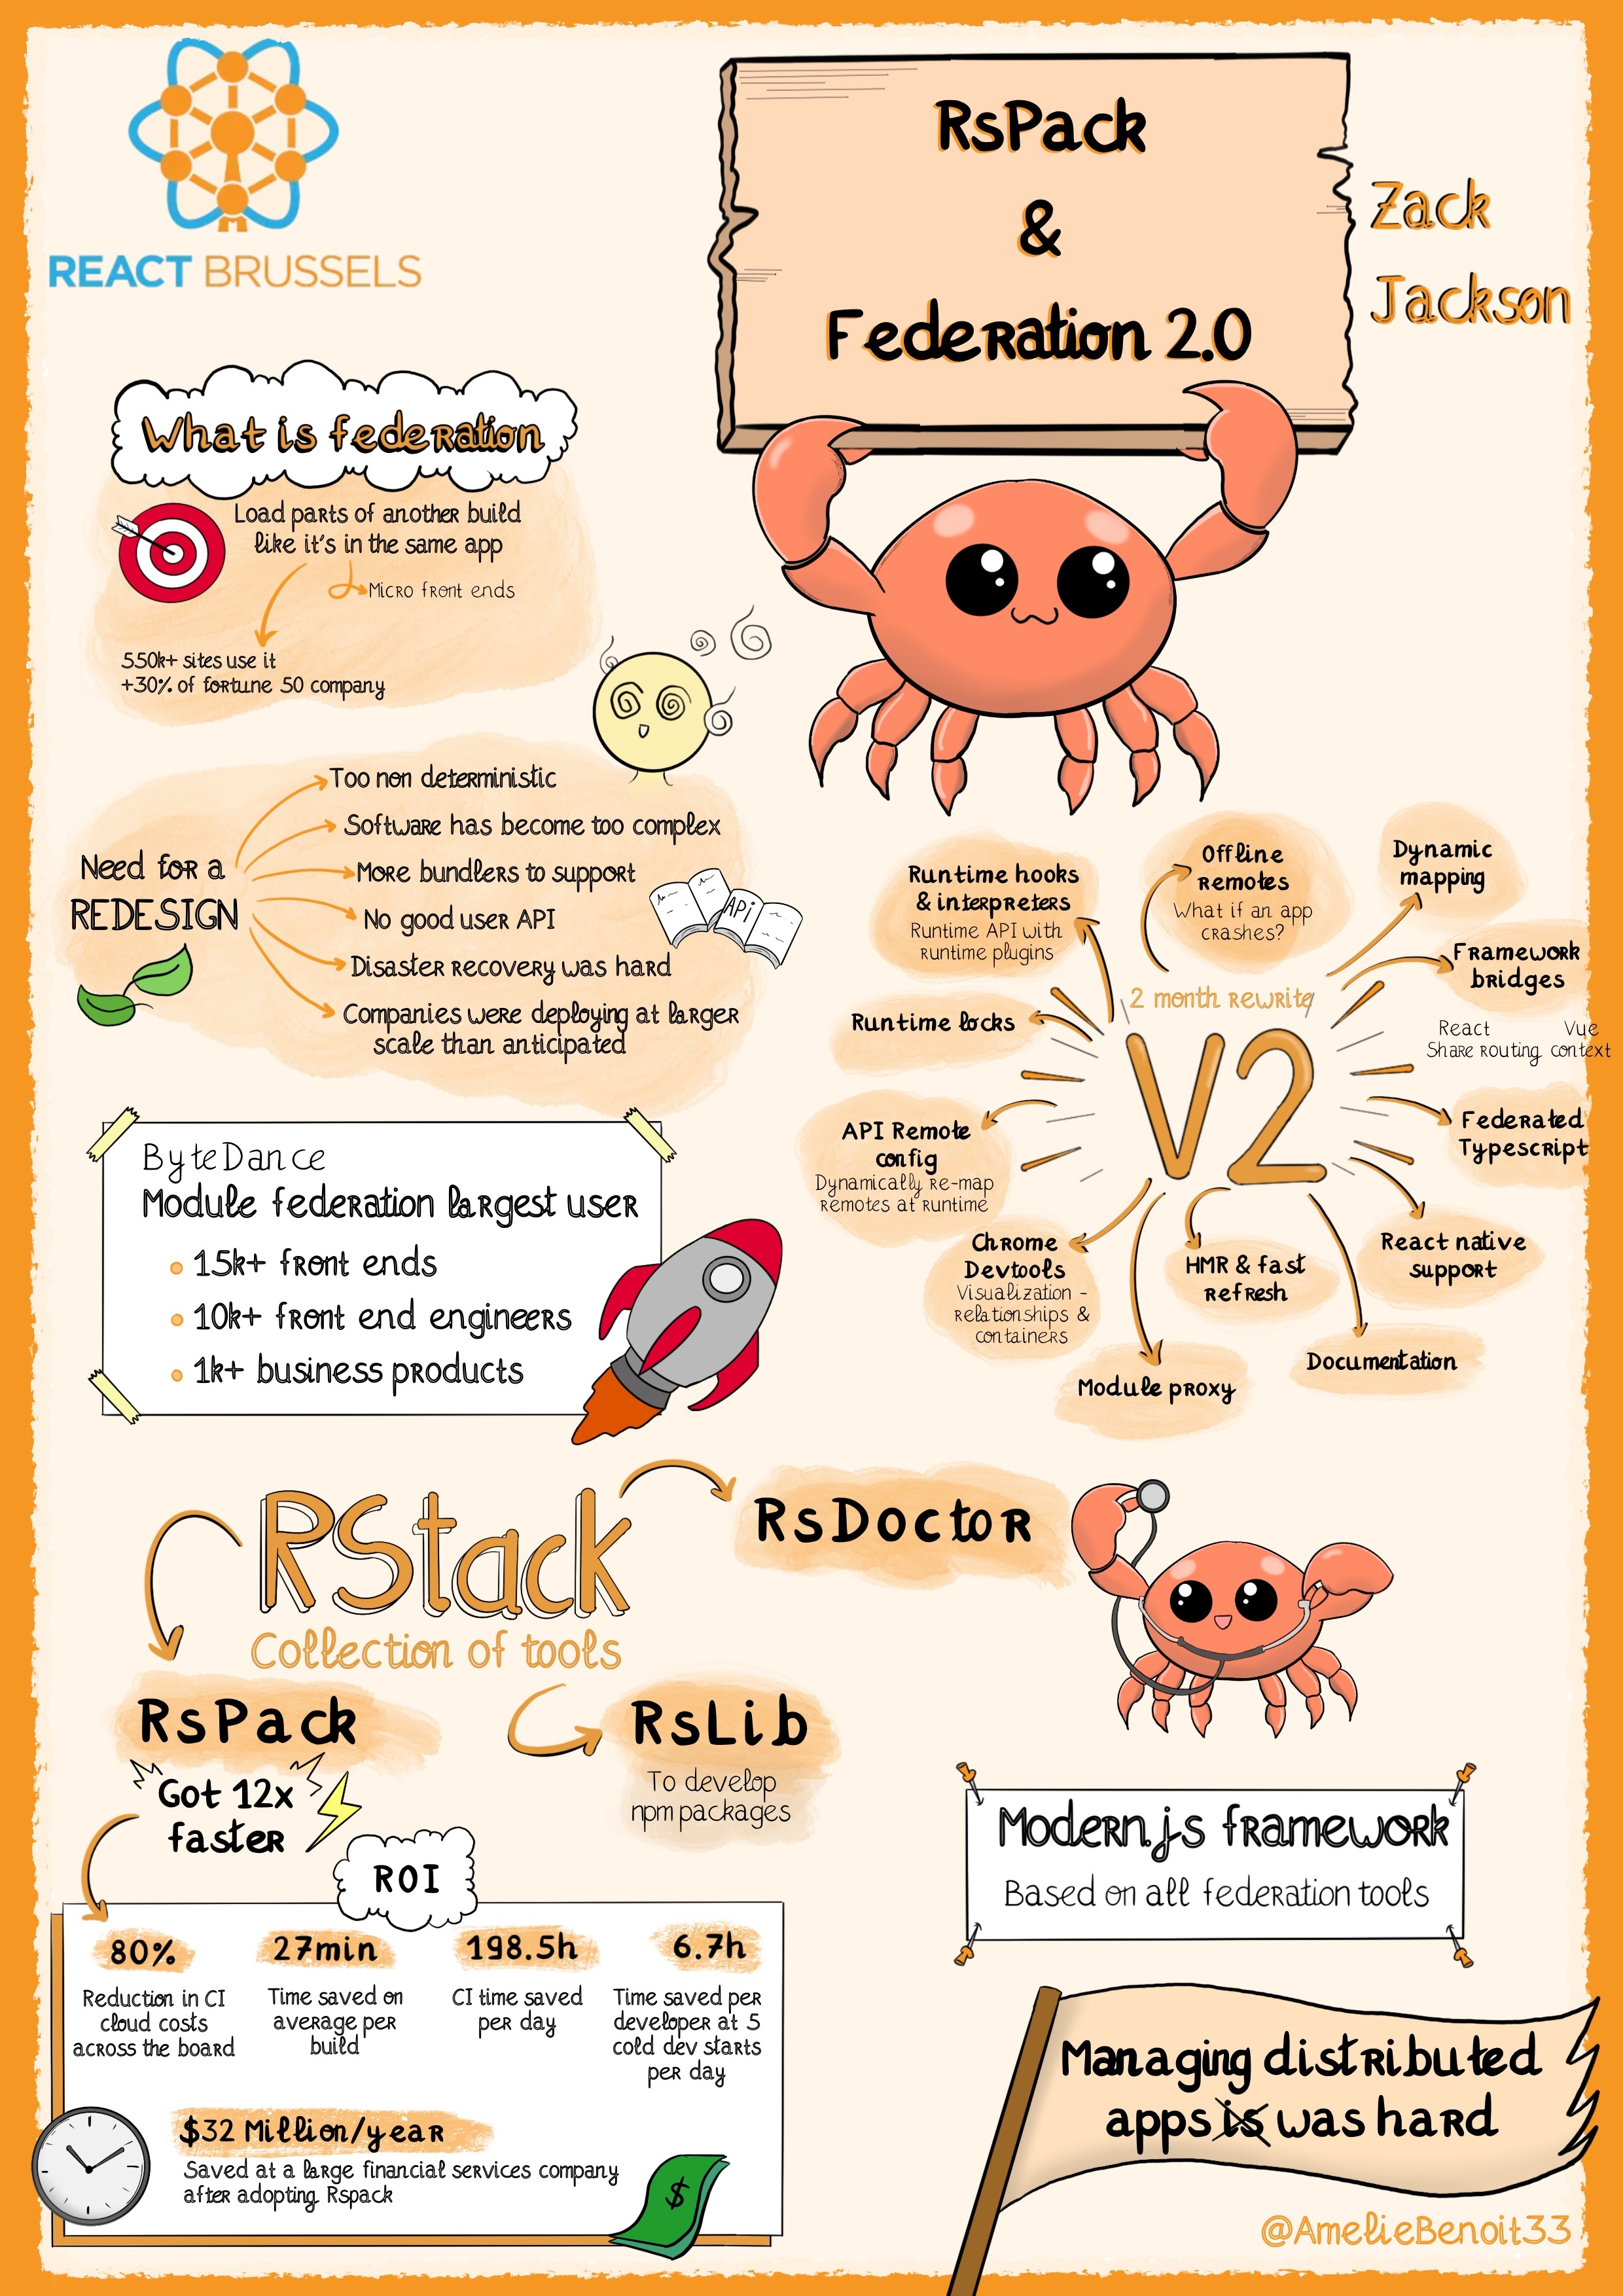 REACT BRUSSELS
RsPack
&
Federation 2.0
Zack
Jackson
What is federation
Load parts of another build
like it's in the same app
Micro front ends
550k+ sites use it
+30% of fortune 50 company
Need for a
REDESIGN
Too non deterministic
Software has become too complex
More bundlers to support
No good user API
Disaster recovery was hard
Companies were deploying at larger
scale than anticipated
API
ByteDance
Module federation largest user
15k+ front ends
10k+ front end engineers
1k+ business products
2 month rewrite
V2
Runtime hooks
& interpreters
Runtime API with
runtime plugins
Offline
remotes
What if an app
crashes?
Dynamic
mapping
Framework
bridges
React Vue
Share routing context
Runtime locks
Federated
Typescript
API Remote
config
Dynamically re-map
remotes at runtime
React native
support
Chrome
Devtools
Visualization -
relationships &
containers
HMR & fast
refresh
Documentation
Module proxy
RStack
Collection of tools
RsDoctor
RsPack
Got 12x
faster
RsLib
To develop
npm packages
ROI
80%
Reduction in CI
cloud costs
across the board
27min
Time saved on
average per
build
198.5h
CI time saved
per day
6.7h
Time saved per
developer at 5
cold dev starts
per day
$32 Million/year
Saved at a large financial services company
after adopting Rspack
$
Modern.js framework
Based on all federation tools
Managing distributed
apps is was hard
@AmelieBenoit33